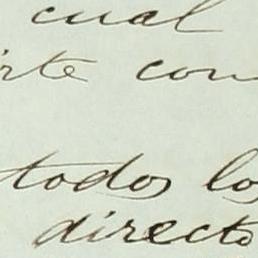 cual
rte con
todos los
directo